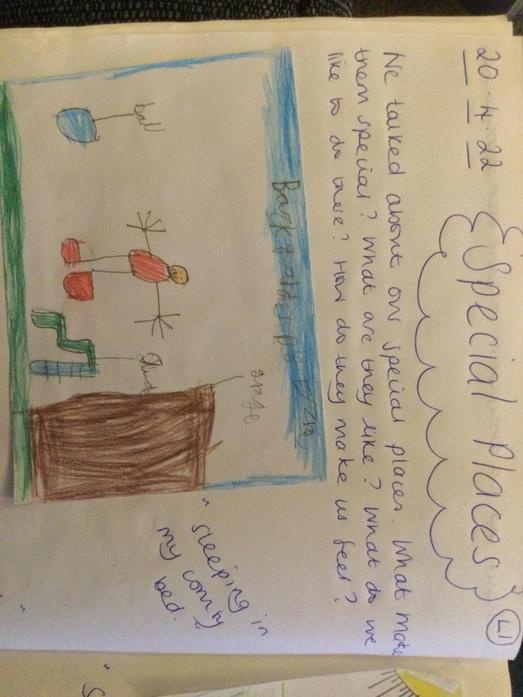 20 4 22
Special Places
L1
We talked about our special places. What make
them special? What are they like? What do we
like to do there? How do they make us feel?
ball
"sleeping in
my comfy
bed."